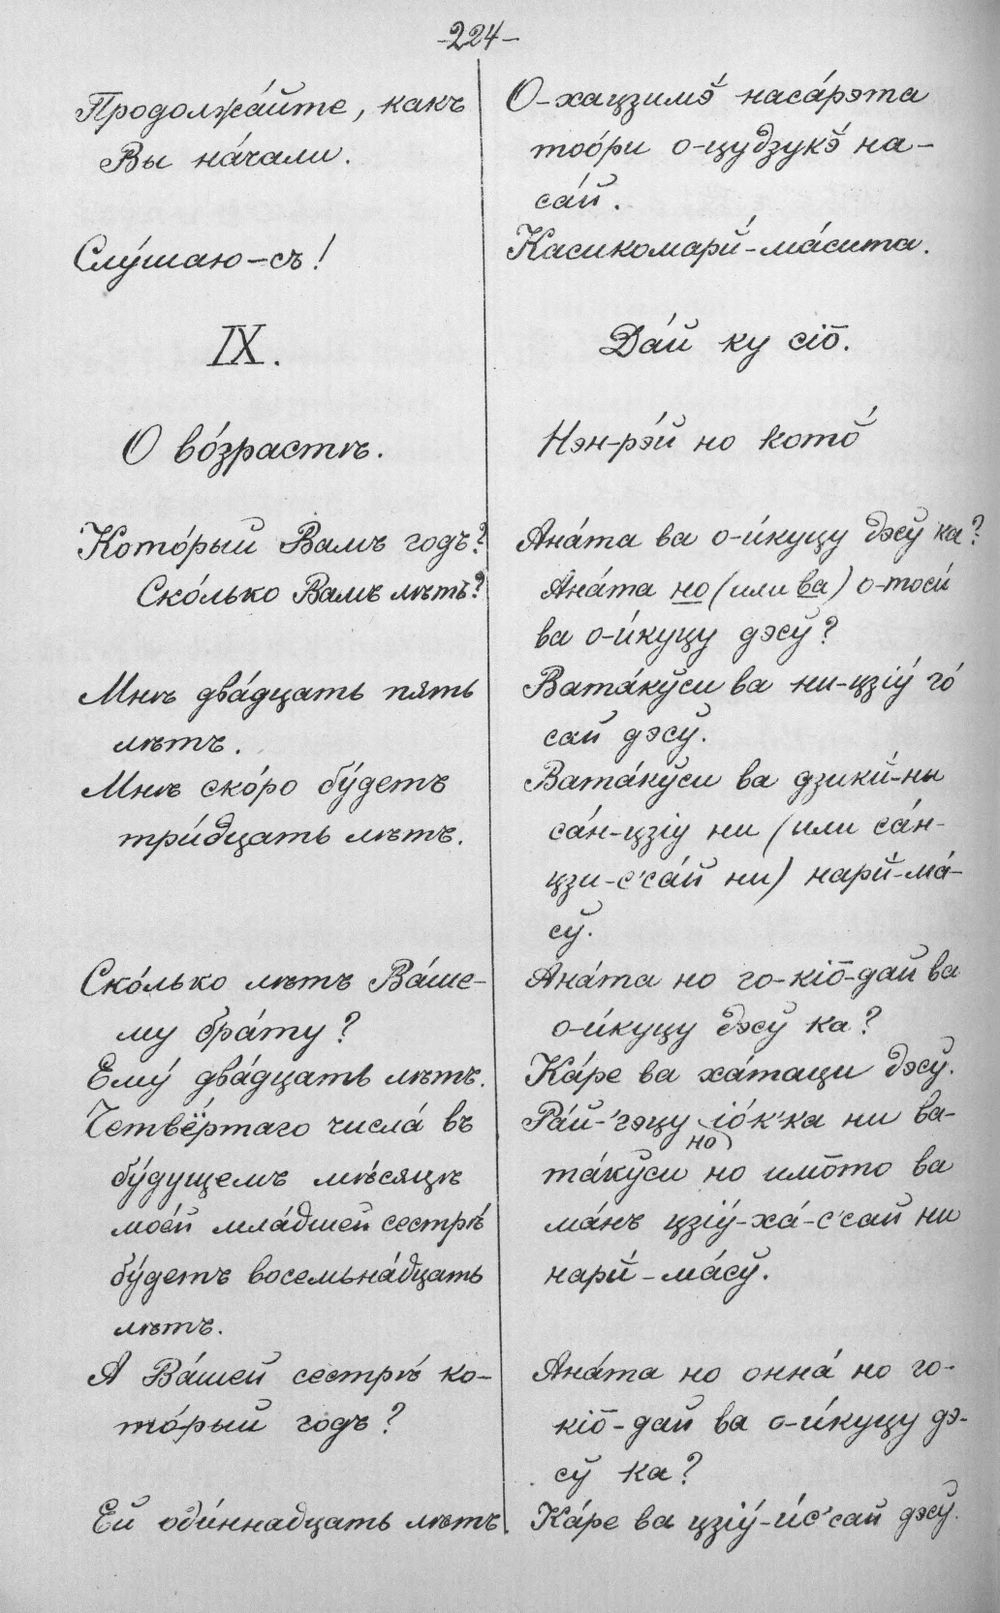 -224-
Продолжа́йте, какъ
Вы на́чали.
Слу́шаю-съ!
IX.
О во́зрастѣ.
Кото́рый Вамъ годъ?
Ско́лько Вамъ лѣтъ?
Мнѣ два́дцать пять
лѣтъ.
Мнѣ ско́ро бу́детъ
три́дцать лѣтъ.
Ско́лько лѣтъ Ва́ше-
му бра́ту?
Ему́ два́дцать лѣтъ.
Четвё́ртаго числа́ въ
бу́дущемъ мѣ́сяцѣ
мое́й мла́дшей сестрѣ́
бу́детъ восемьна́дцать
лѣтъ.
А Ва́шей сестрѣ́ ко-
то́рый годъ?
Ей оди́ннадцать лѣтъ.
О-хацзимэ̄́ наса́рэта
тоо́ри о-цудзукэ̄́ на-
са́й.
Касикомарй́-ма́сита.
Да́й ку сіо̄.
Нэн-рэ́й но кото̄́
Ана́та ва о-и́куцу дэсў ка?
Ана́та но (или ва) о-тоси́
ва о-и́куцу дэсў?
Вата́кўси ва ни-цзіу́ го́
сай дэсў.
Вата́кўси ва дзикй́-ни
са́н-цзіу ни (или са́н-
цзи-с'са́й ни) нарй́-ма́-
сў.
Ана́та но го-кіо̄-дай ва
о-и́куцу дэсў ка?
Ка́ре ва ха́таци дэсў.
Ра́й-'гэцу іо́к'ка ни ва-
но
та́кўси но имо̄то ва
ма́нъ цзіу́-ха́-с'сай ни
нарй́-ма́сў.
Ана́та но онна́ но го-
кіо̄-дай ва о-и́куцу дэ-
сў ка?
Ка́ре ва цзіу́-и́с'сай дэсў.